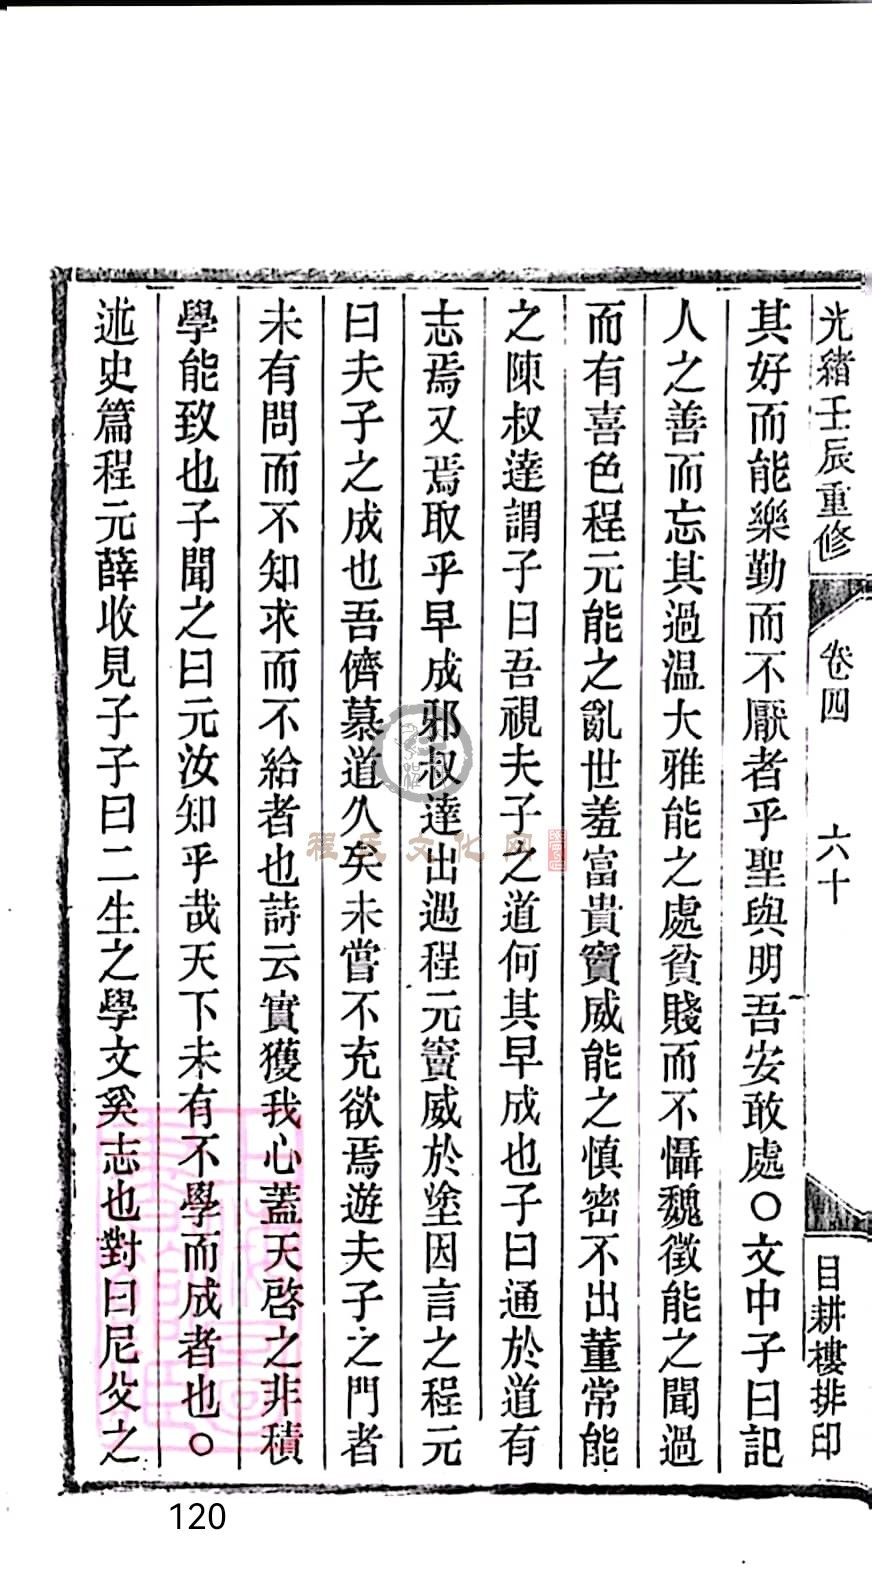 光緖壬辰重修
卷四
六十
目耕樓排印
其好而能樂勤而不厭者乎聖與明吾安敢處○文中子曰記
人之善而忘其過溫大雅能之處貧賤而不懾魏徵能之聞過
而有喜色程元能之亂世羞富貴竇威能之愼密不出董常能
之陳叔達謂子曰吾視夫子之道何其早成也子曰通於道有
志焉又焉取乎早成邪叔達出遇程元竇威於塗因言之程元
曰夫子之成也吾儕慕道久矣未嘗不充欲焉遊夫子之門者
未有問而不知求而不給者也詩云實獲我心蓋天啓之非積
學能致也子聞之曰元汝知乎哉天下未有不學而成者也○
述史篇程元薛收見子子曰二生之學文奚志也對曰尼父之
程氏文化网
120